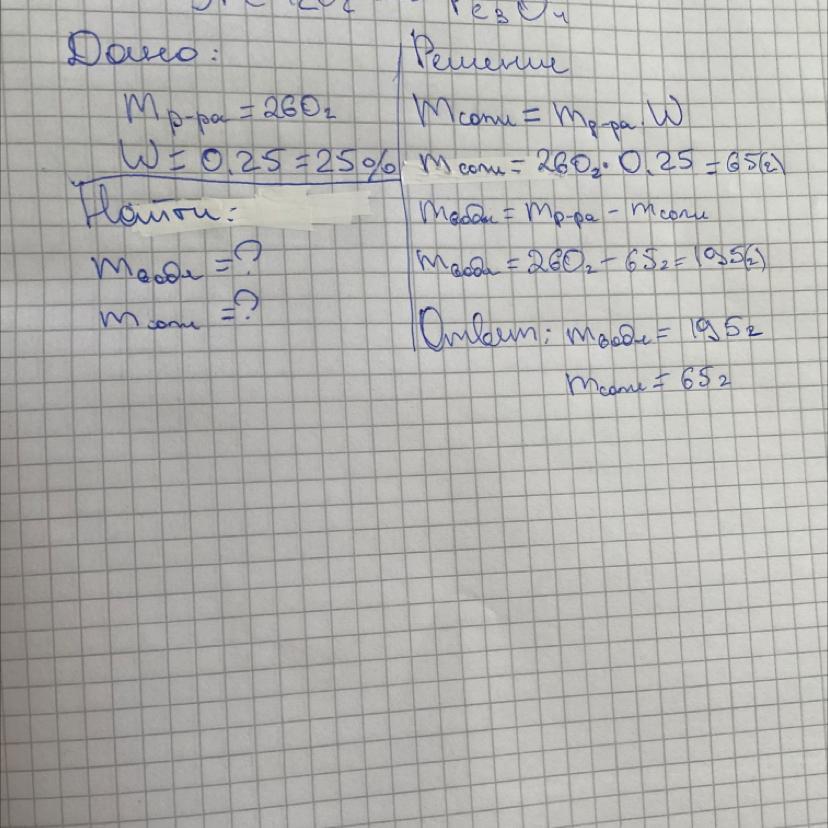 Дано:
mр-ра = 260г
W = 0.25 = 25%
Найти:
mводы = ?
mсоли = ?
Решение
mсоли = mр-ра · W
mсоли = 260г · 0.25 = 65(г)
mводы = mр-ра - mсоли
mводы = 260г - 65г = 195(г)
Ответ: mводы = 195г
mсоли = 65г